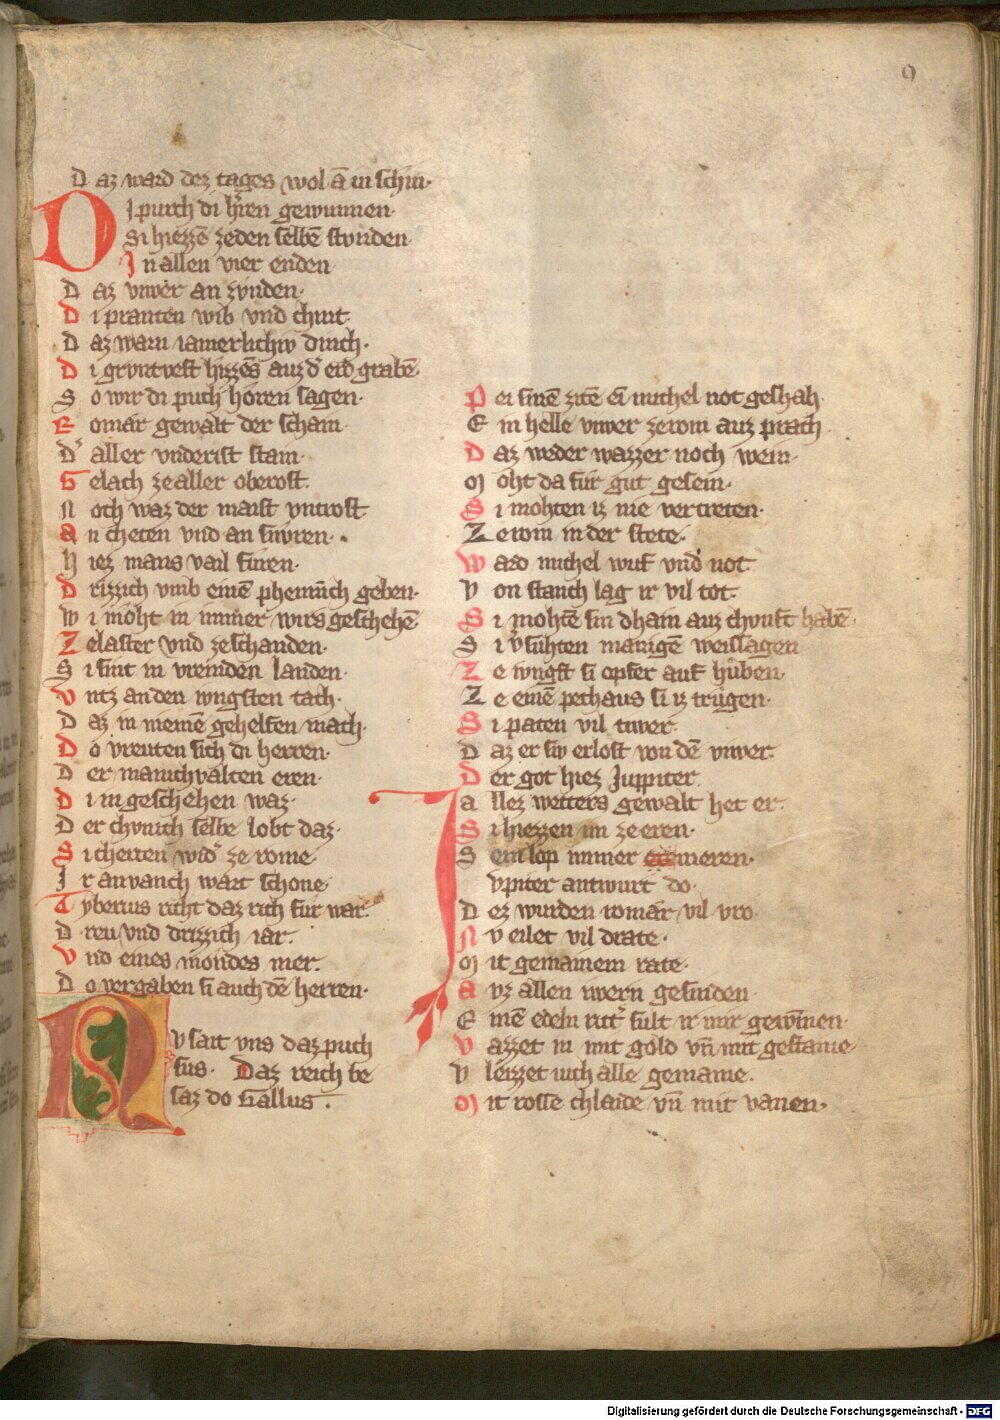 9
D az ward dez tages wol ā in schin·
DI purch di h̄ren gewunnen·
Si hiezzē zeden selbē stvnden·
I n allen vier enden
D az vnwer an zvnden·
D i pranten wib vnd chint
D az warn iamerlichiv dinch·
D i grvntvest hizzēs auz d̓ erd grabē·
S o wir di puch horen sagen·
R omär gewalt der scham
D̓ aller vnderist stain·
G elach ze aller oberost.
N och waz der maist vntrost
A n cheten vnd an snvren·
H iez mans vail fűren·
D rizzich vmb einē phennīch geben·
W i moht in immer wirs geschehē
Z e laster vnd zeschanden·
S i sint in vremden landen·
V ntz an den ivngsten tach·
D az in niemē gehelfen mach·
D o vreuten sich di herren·
D er manichvalten eren·
D i in geschehen waz·
D er chvnich selbe lobt daz·
S i cherten wid̓ ze rome·
I r anvanch wart schone
T yberius richt daz rich fur war·
D reu vnd drizzich iar.
V nd eines mondes mer.
D o vergaben si auch dē herren·
NV sait vns daz puch
sus· Daz reich be
saz do Gallus.
P ei sinē zitē ein michel not geshah
E in helle vnwer zerom auz prach
D az weder wazzer noch wein·
M oht da fur gut gesein·
S i mohten iz nie vertreten·
Z e rom in der stete·
W ard michel wuf vnd not
V on stanch lag ir vil tot·
S i mohtē sin dhain auz chvnft habē·
S i v̓suhten manigē weissagen
Z e ivngst si opfer auf hůben·
Z e einē pethaus si iz trůgen·
S i paten vil tiwer
D az er siv erlost von dē vnwer
D er got hiez Juppiter
A llez wetters gewalt het er·
S i hiezzen im ze eeren·
S ein lop immer meren·
IVpiter antwurt do·
D ez wurden romär vil vro
N v eilet vil drate·
M it gemainem rate·
A vz allen iwern gesinden
E inē edeln ritt̓ sult ir mir gewīnen·
V azzet in mit gold vn̄ mit gestaine·
V leizzet iuch alle gemaine.
M it rosse chlaide vn̄ mit vanen·
Digitalisierung gefördert durch die Deutsche Forschungsgemeinschaft - DFG